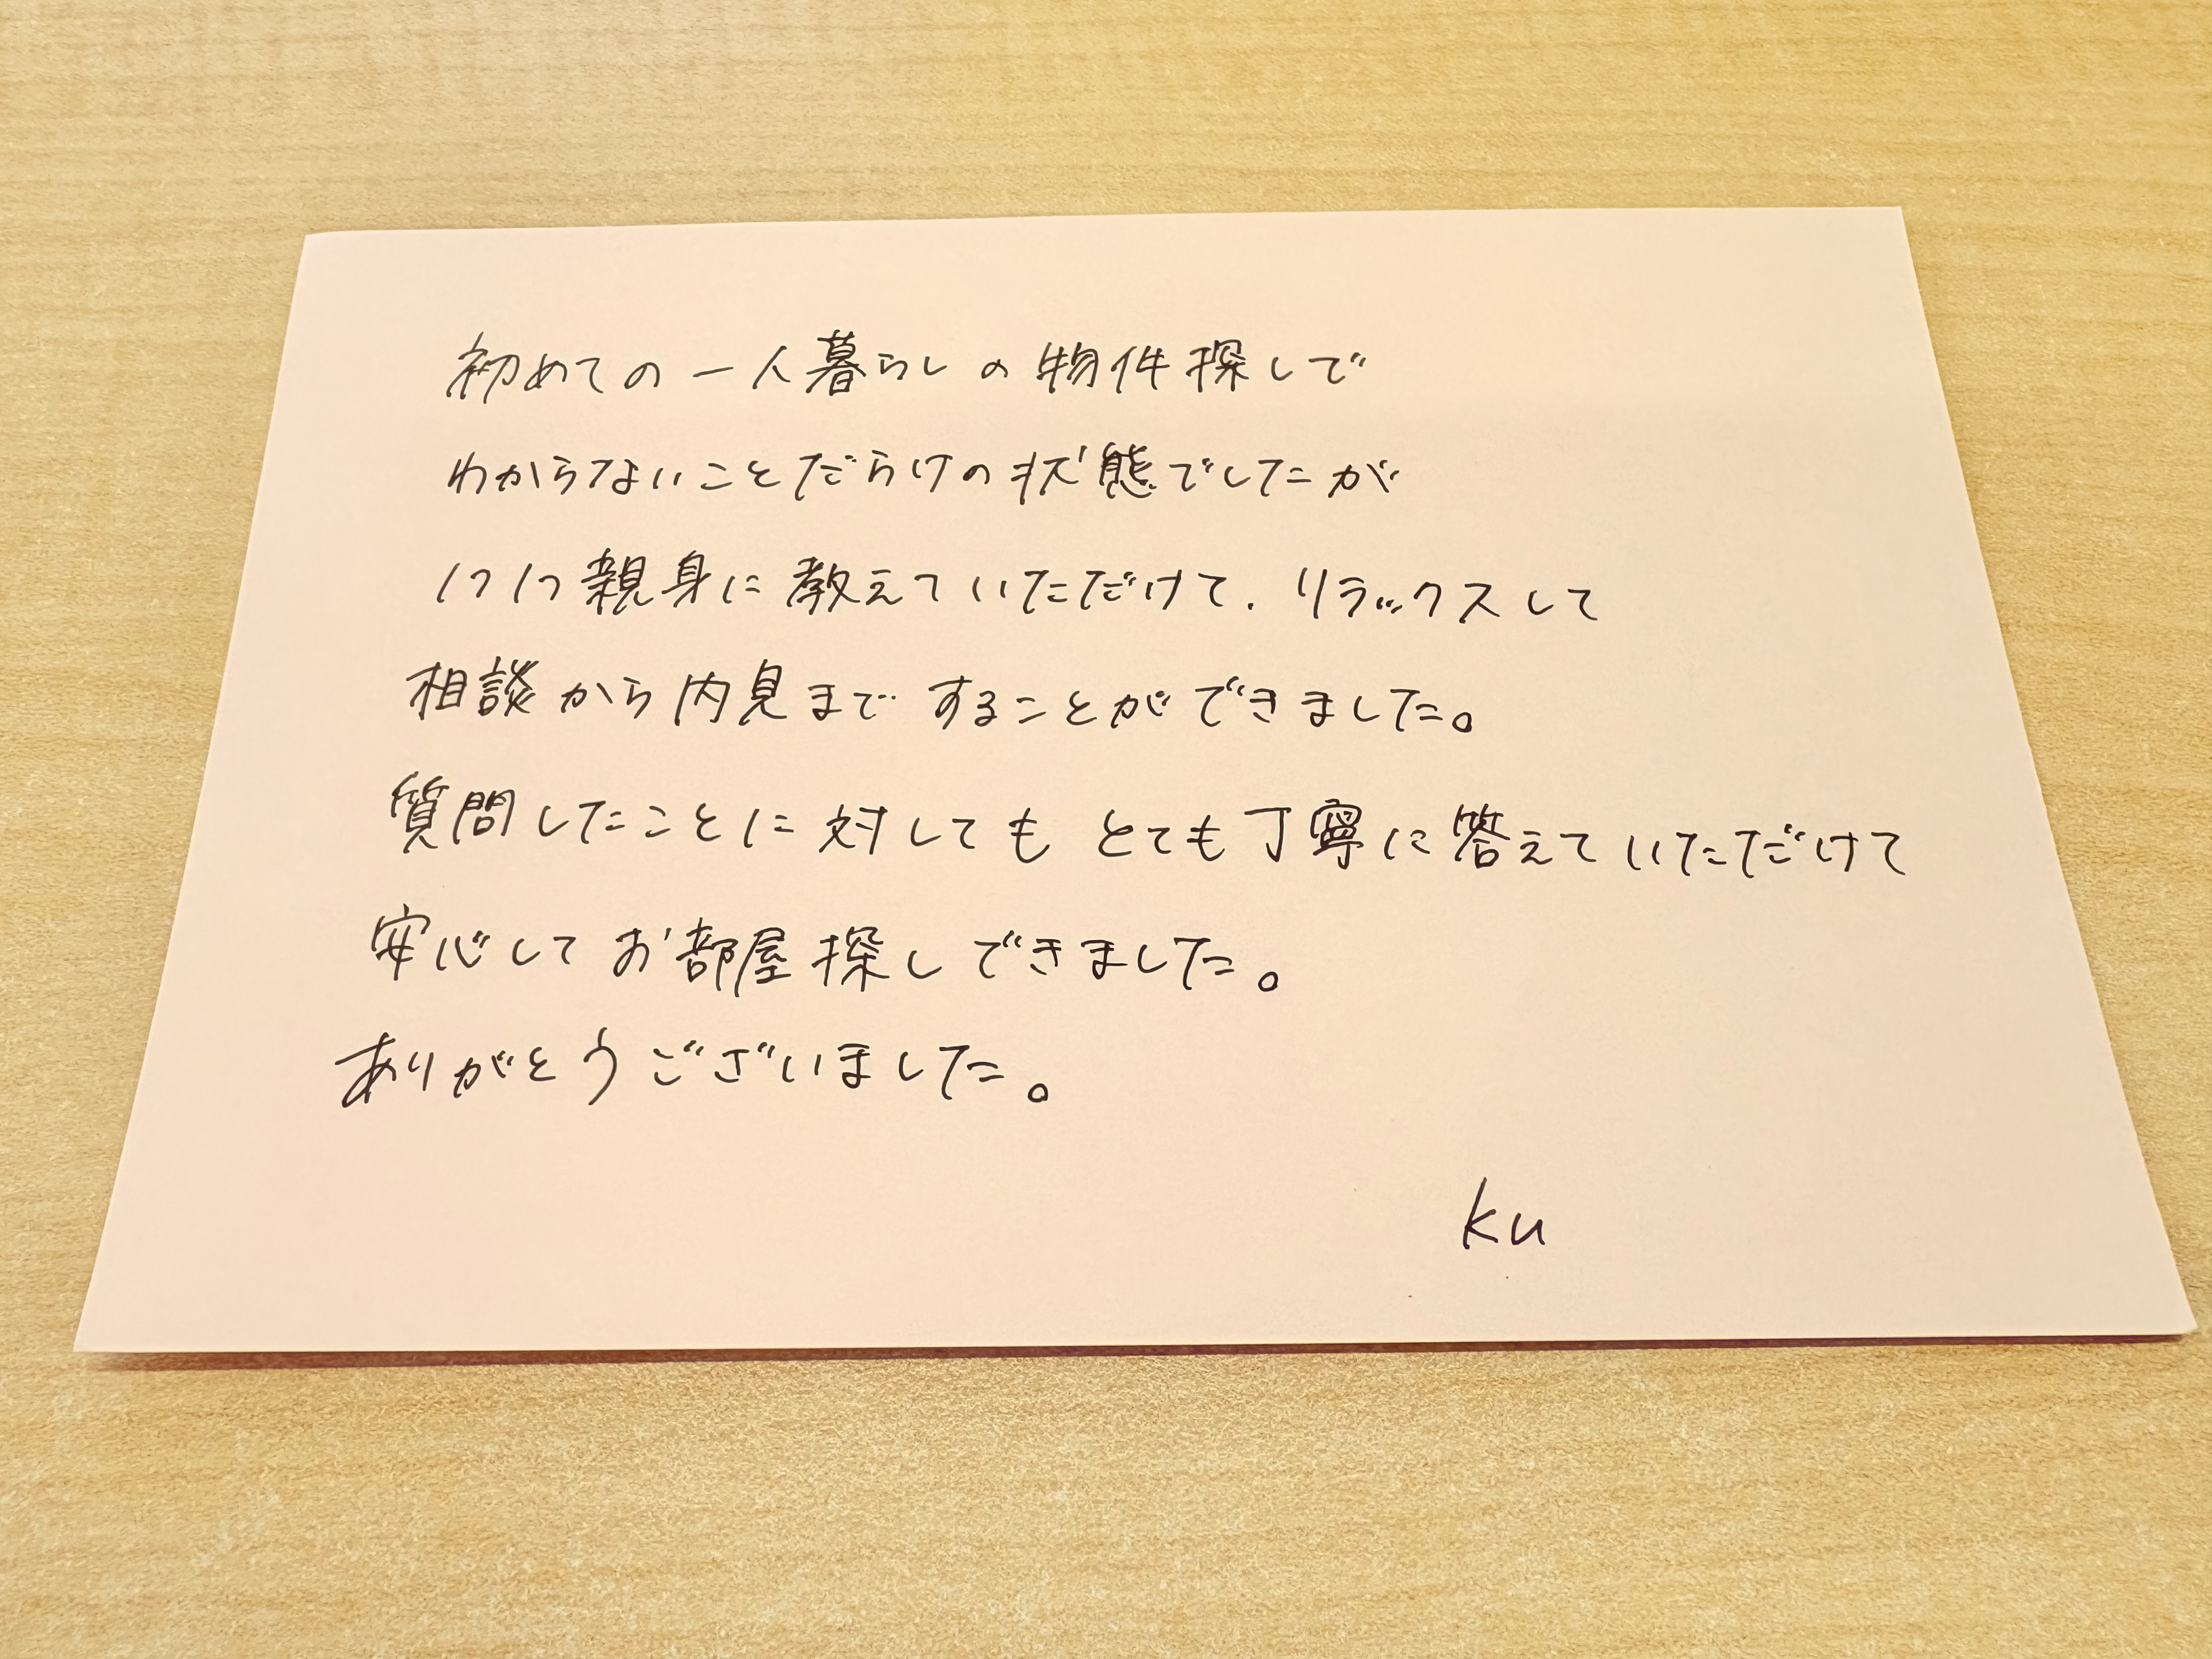 初めての一人暮らしの物件探しで
わからないことだらけの状態でしたが
1つ1つ親身に教えていただけて、リラックスして
相談から内見まですることができました。
質問したことに対してもとても丁寧に答えていただけて
安心してお部屋探しできました。
ありがとうございました。
ku